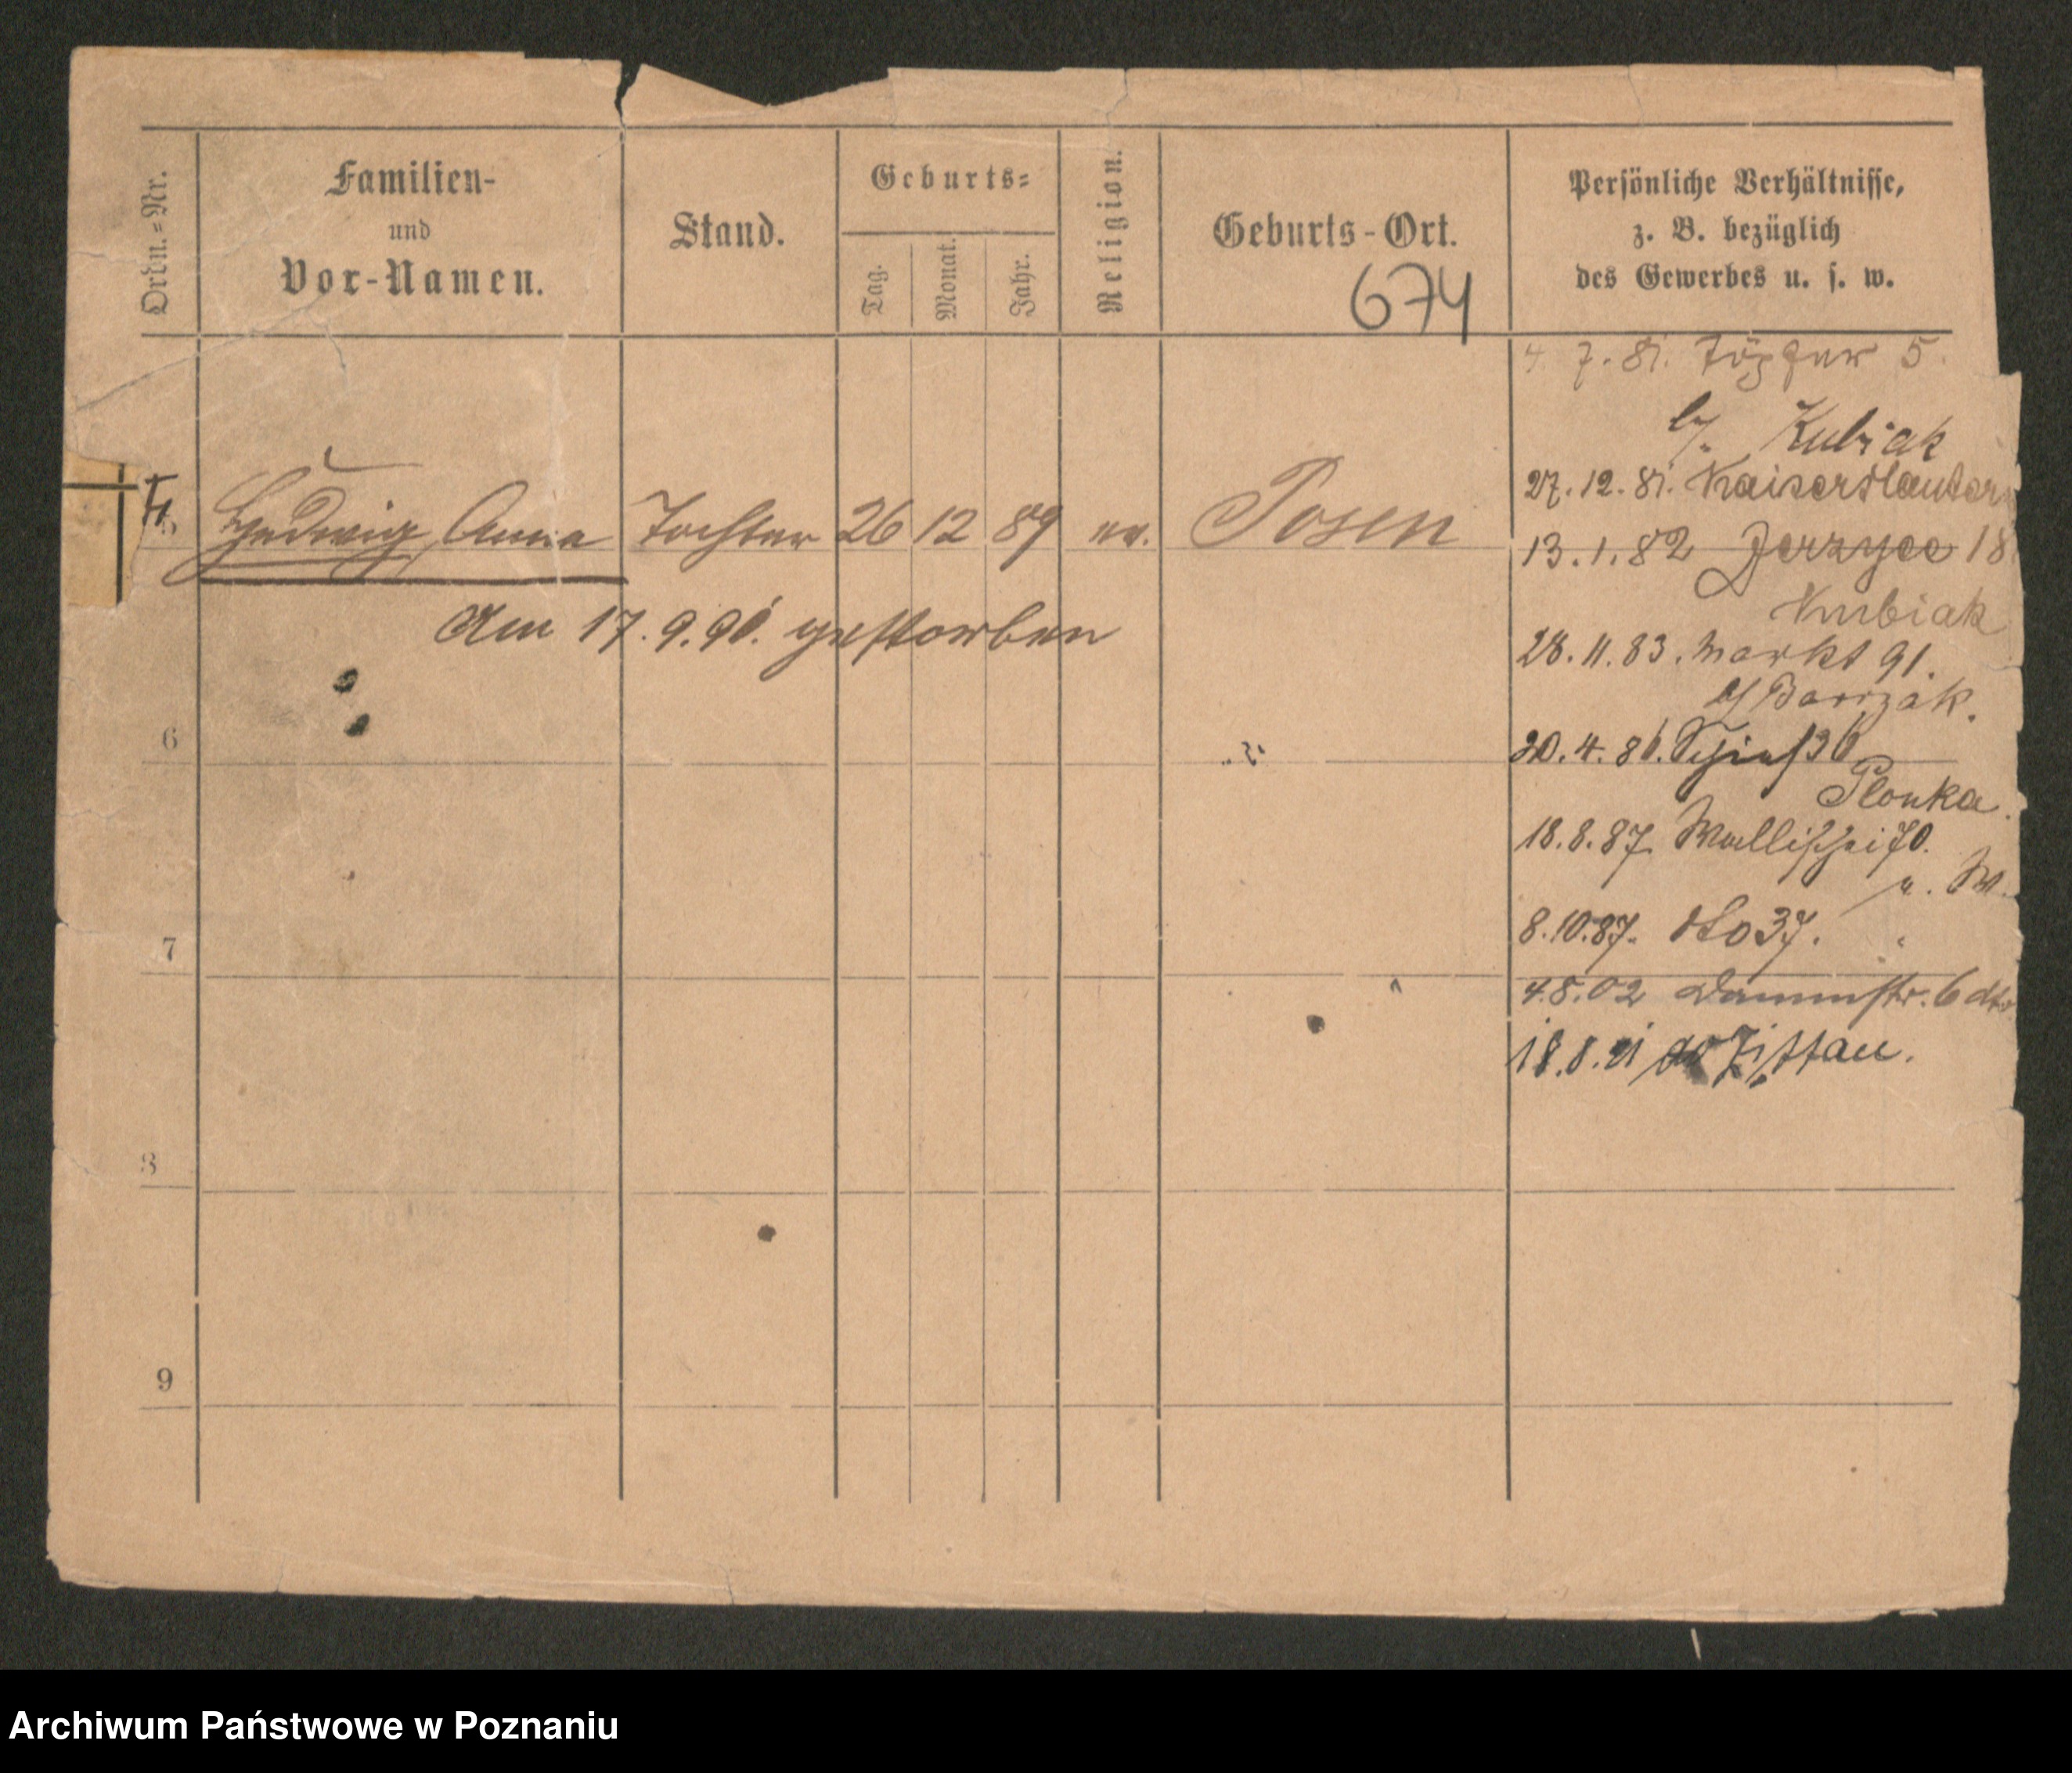 Ordn.=Nr.
Familien-
und
Vor-Namen.
Stand.
Geburts=
Tag.
Monat.
Jahr.
Religion.
Geburts-Ort.
674
Persönliche Verhältnisse,
z. B. bezüglich
des Gewerbes u. s. w.
4. 7. 81. Töpfer 5.
b/. Kubiak
27. 12. 81. Kaiserslautern
Hedwig Anna Tochter 26 12 89 ev. Posen
13. 1. 82 Jerzyce 18
Kubiak
Am 17. 9. 90. gestorben
28. 11. 83. Markt 91.
b/ Barrzak.
6
20. 4. 86.
Plonka.
18. 8. 87. Wallischei 70.
u. W.
7
8. 10. 87. dto 37.
4. 8. 02 Dammstr. 6
Zittau.
8
9
Archiwum Państwowe w Poznaniu